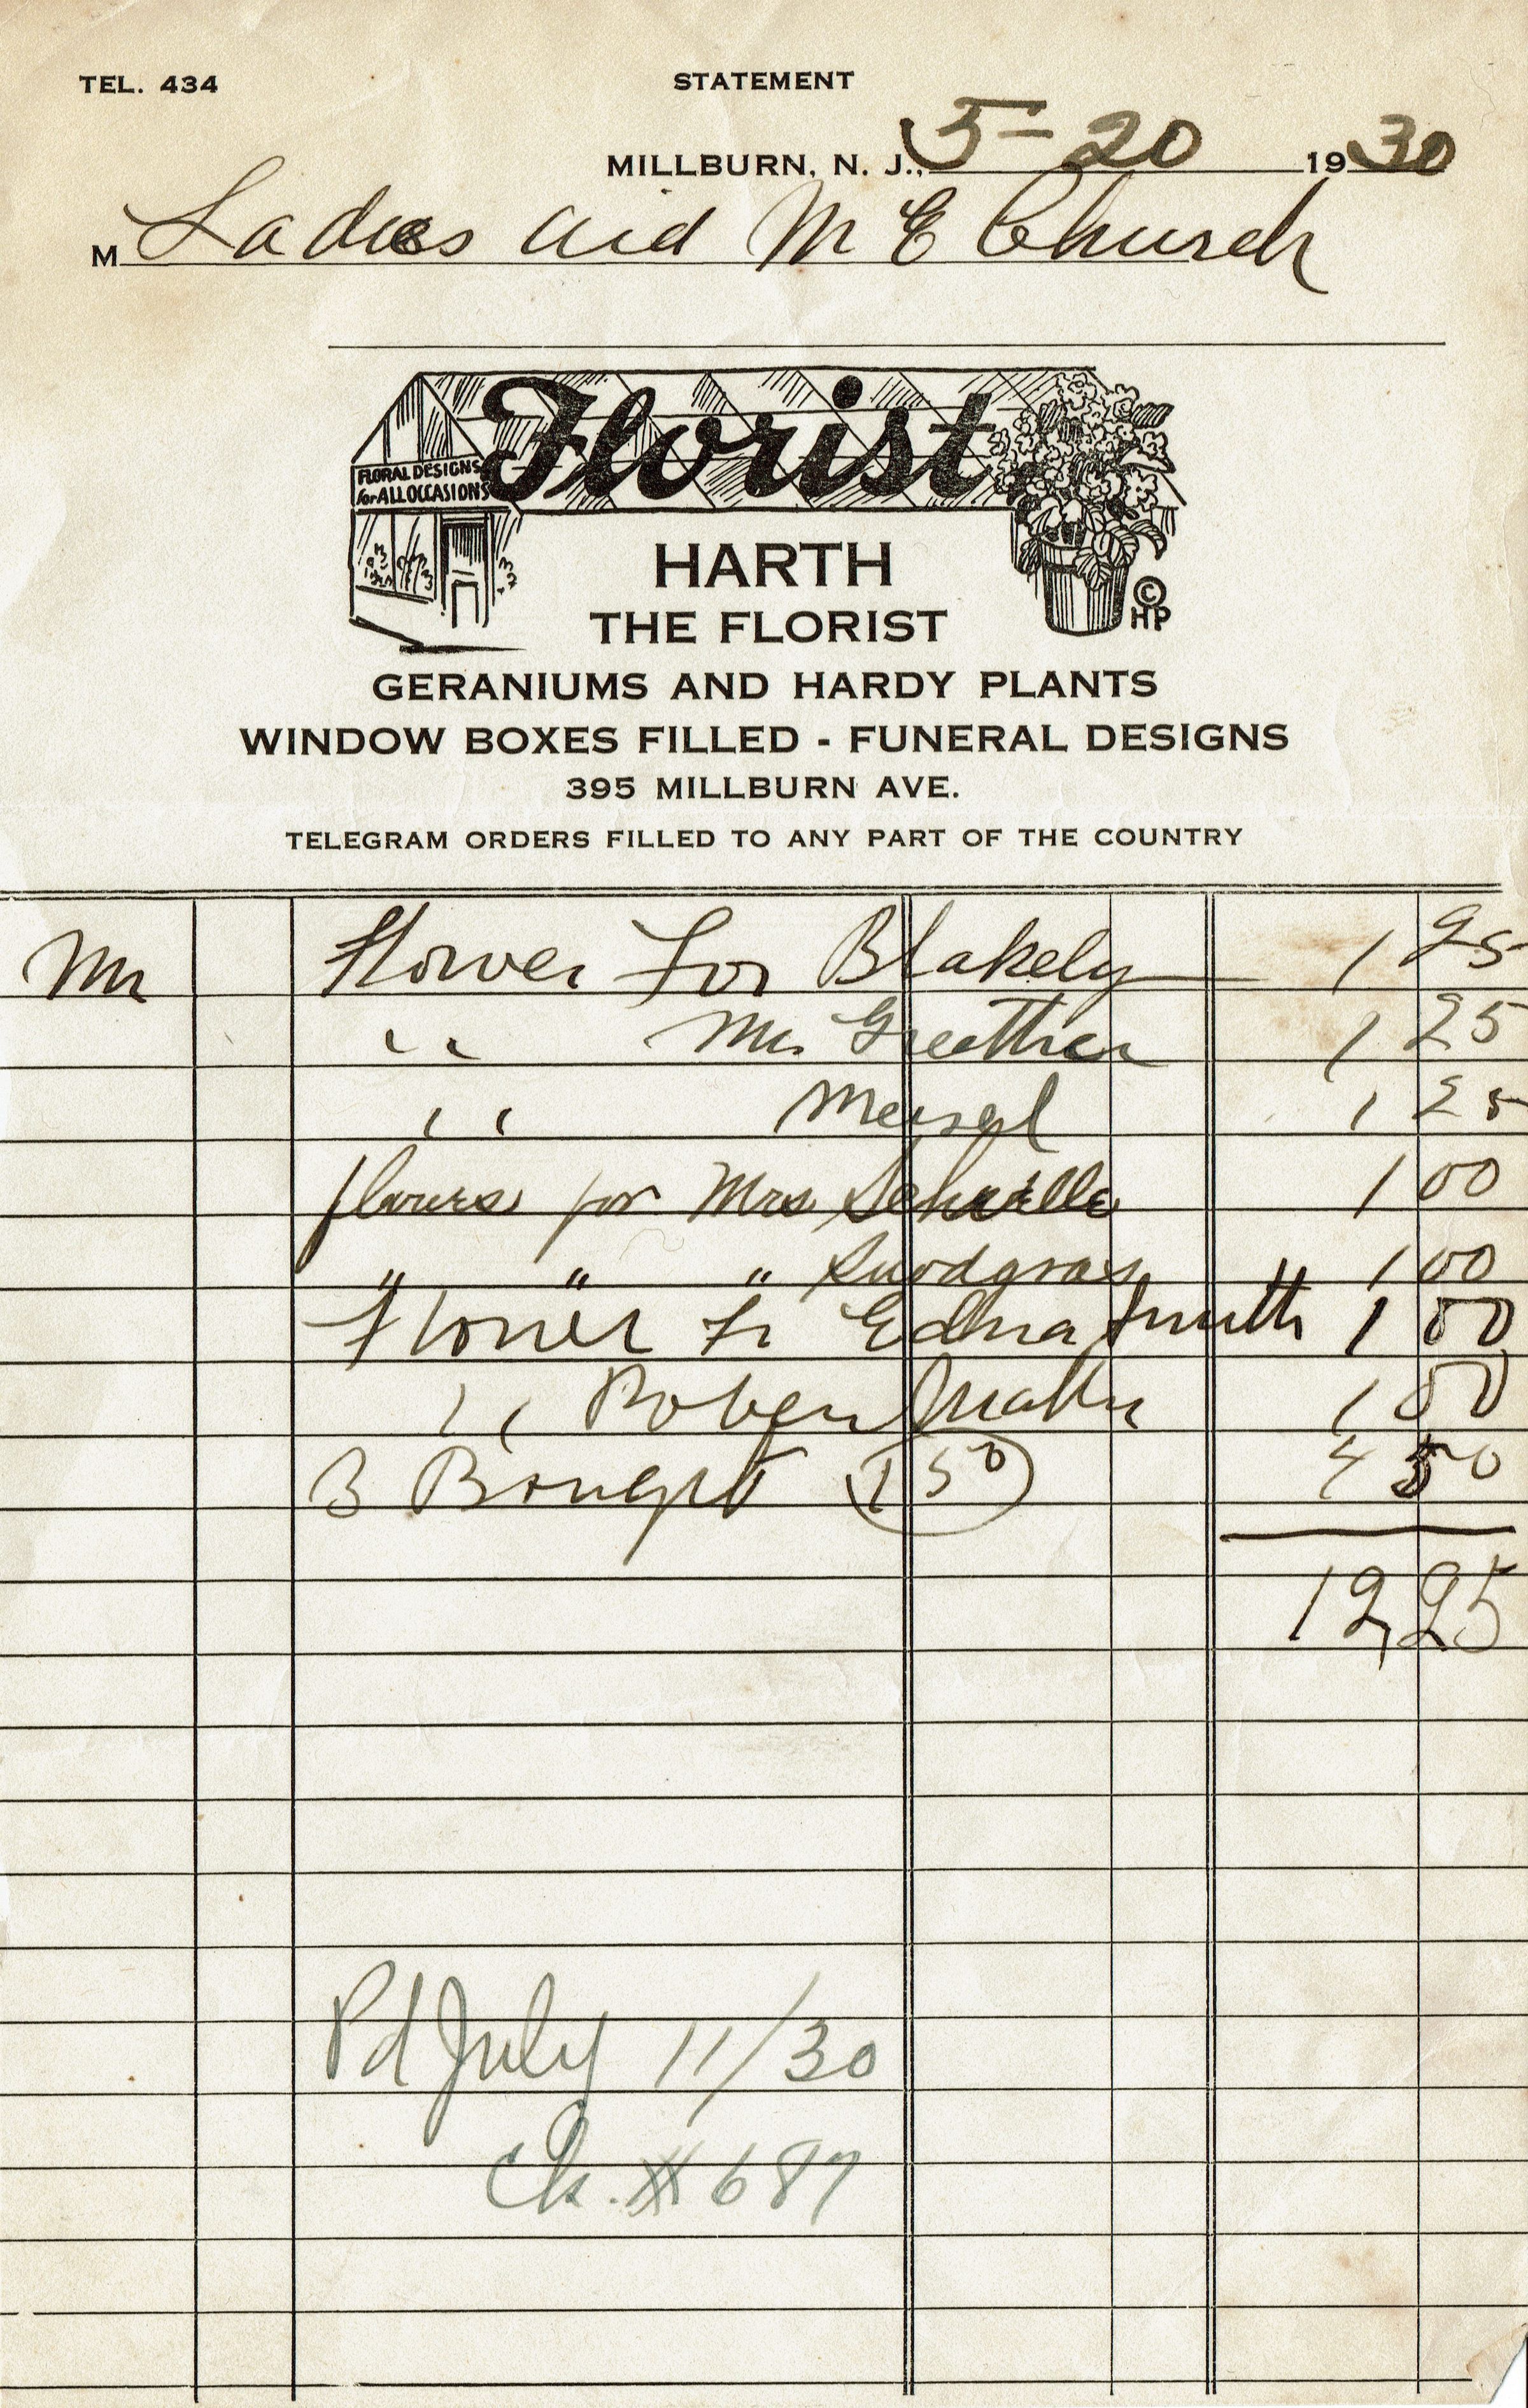 TEL. 434
STATEMENT
MILLBURN, N. J., 5-20 1930
M Ladies Aid M E Church
Florist
FLORAL DESIGNS
for ALL OCCASIONS
HARTH
THE FLORIST
© HP
GERANIUMS AND HARDY PLANTS
WINDOW BOXES FILLED - FUNERAL DESIGNS
395 MILLBURN AVE.
TELEGRAM ORDERS FILLED TO ANY PART OF THE COUNTRY
Flower For Blakely 1 25
" Mrs 1 25
" Meisel 1 25
flowers for Mrs 1 00
" " " Snodgrass 1 00
Flower Fr Edna Smith 1 00
" 1 00
3 Bought 1 50 4 50
12,25
Pd July 11/30
Ck. #687